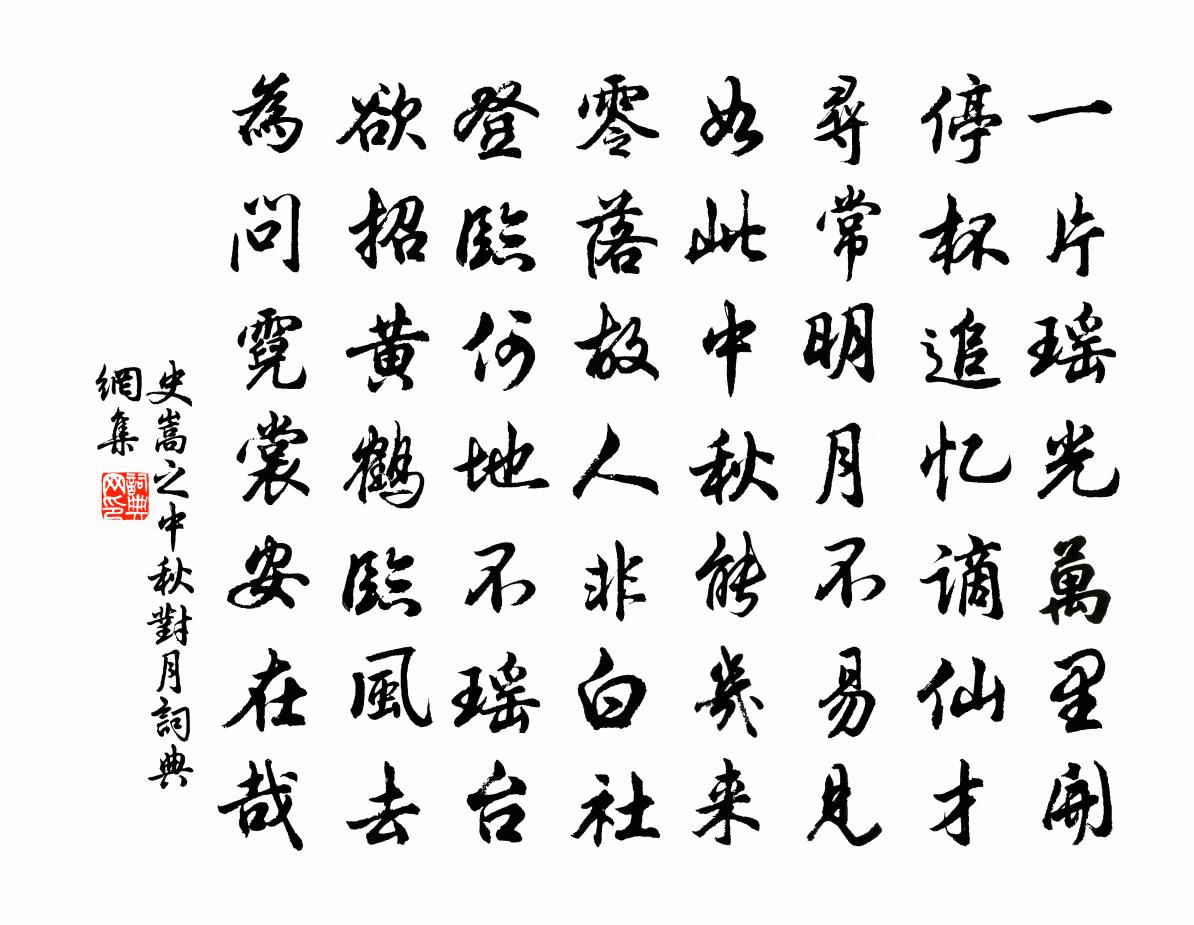 一片瑶光萬里開
停杯追忆謫仙才
尋常明月不易見
如此中秋能幾来
零落故人非白社
登臨何地不瑶台
欲招黄鶴臨風去
為問霓裳安在哉
史嵩之中秋對月詞典
網集
詞典网印